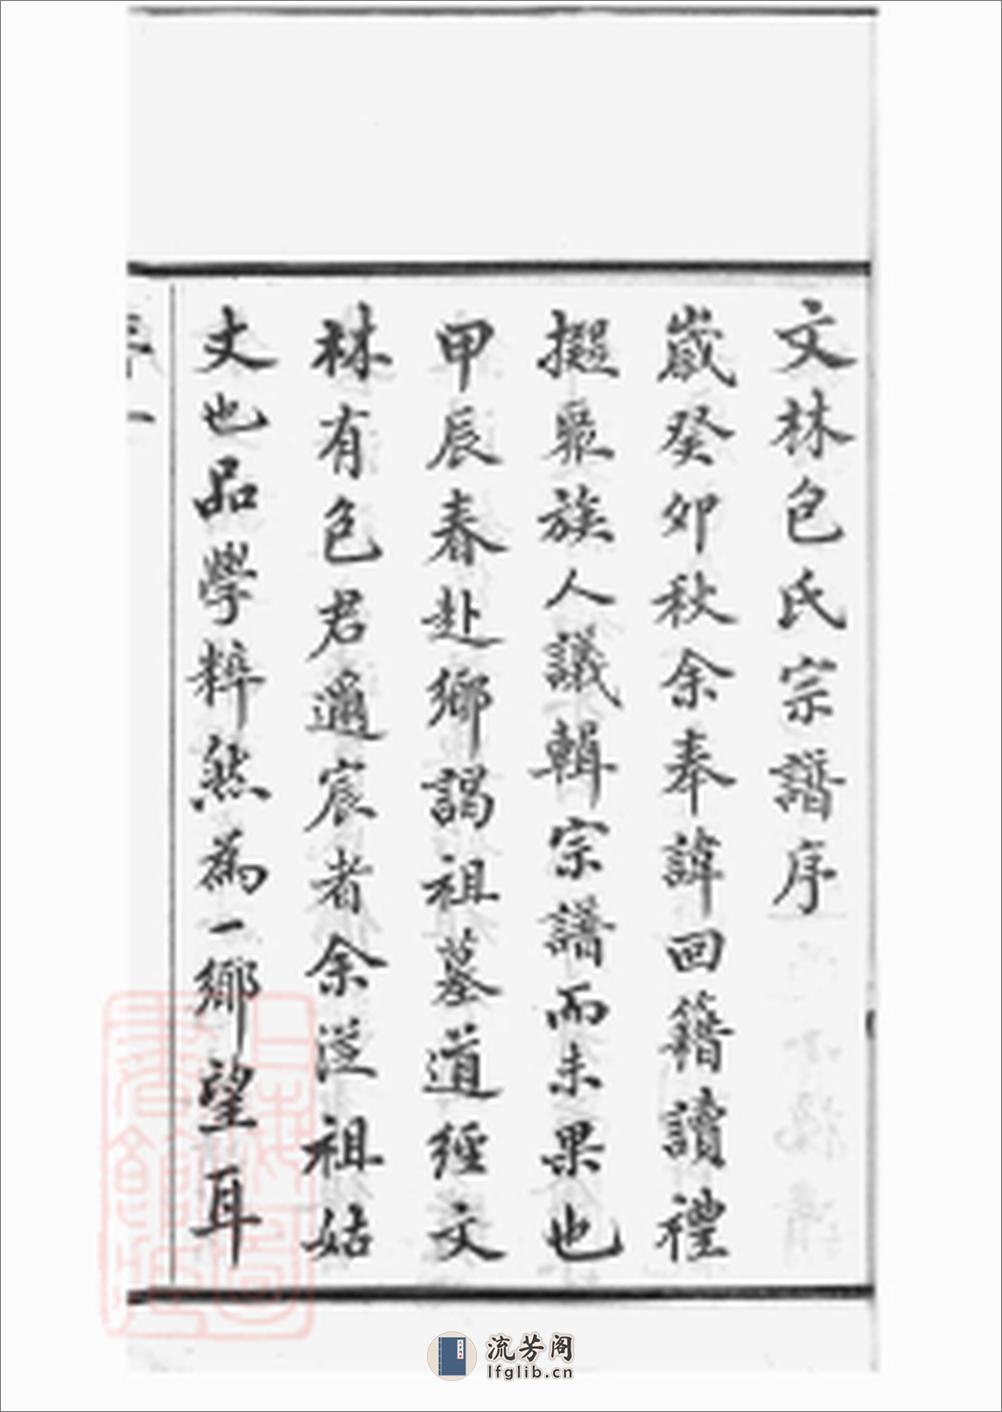 文林包氏宗譜序
歲癸卯秋余奉諱回籍讀禮
擬聚族人議輯宗譜而未果也
甲辰春赴鄉謁祖墓道經文
林有包君邇宸者余從祖姑
丈也品學粹然為一鄉望耳
一
上海圖書館藏
流芳阁
lfglib.cn